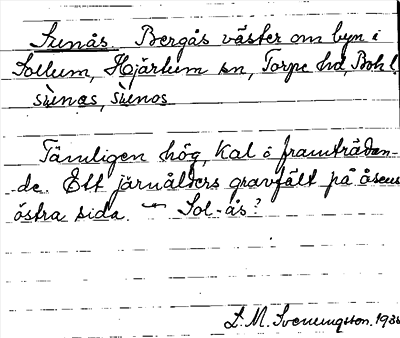 Sunås Bergås väster om byn i
Sollum, Hjärtum sn, Torpe hd, Boh l.
sùnas, sùnos
Tämligen hög, kal o framträdan-
de. Ett järnålders gravfält på åsens
östra sida. — Sol-ås?
L. M. Svenungsson. 193